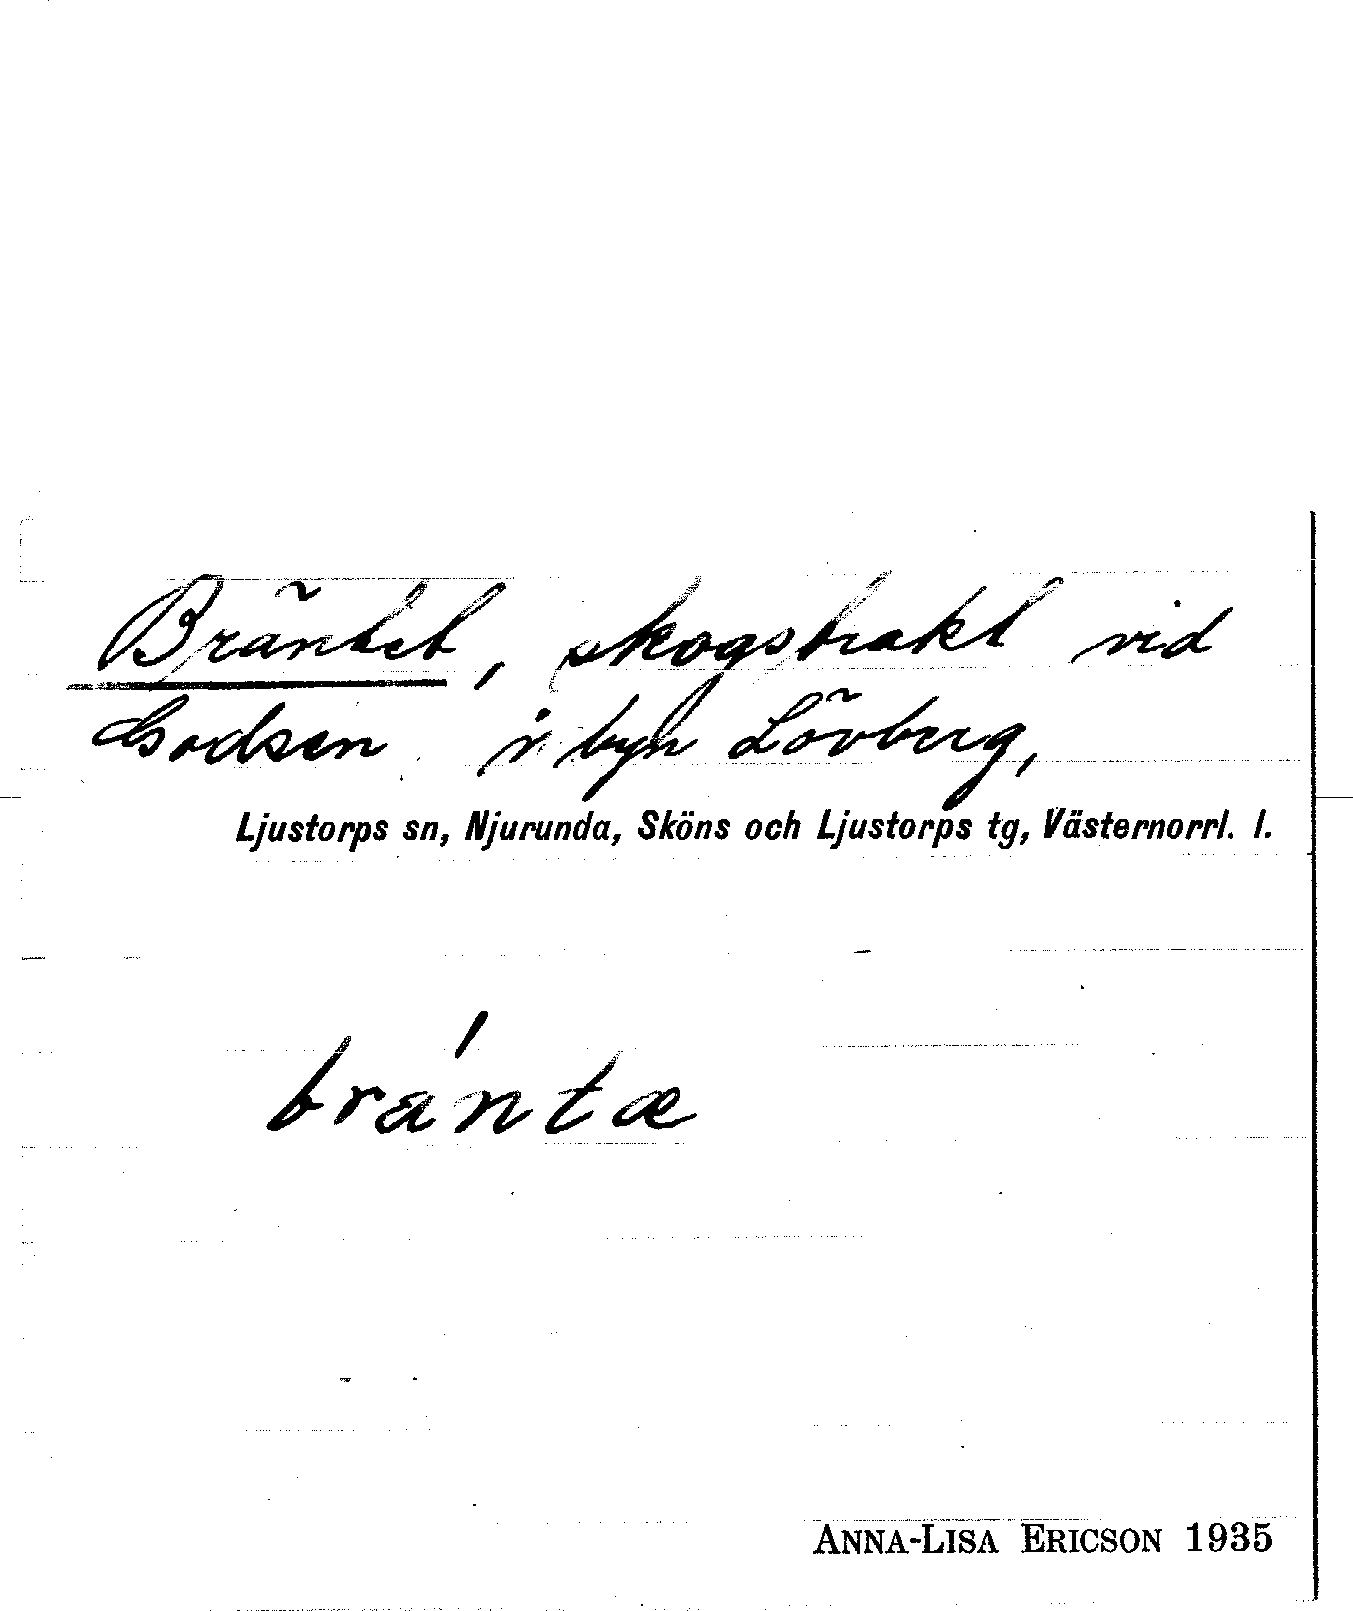 Bräntet, skogstrakt vid
Godsen i byn Lövberg,
Ljustorps sn, Njurunda, Sköns och Ljustorps tg, Västernorrl. l.
bräntæ
ANNA-LISA ERICSON 1935